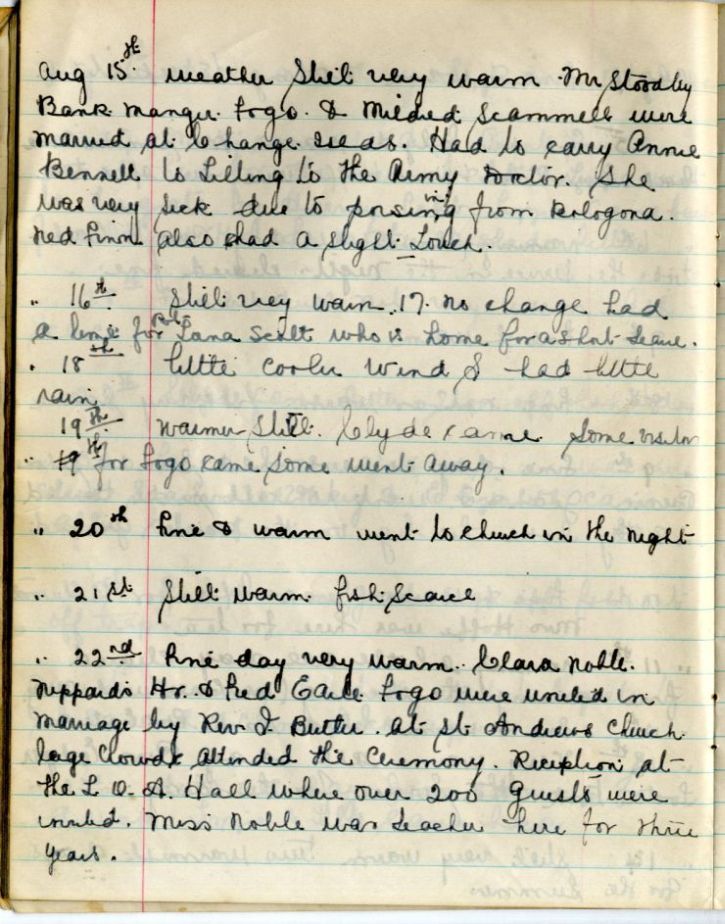 Aug 15th. weather Still very warm. Mr Stoodley
Bank manger Fogo. & Mildred Scammell were
married at Change Islds. Had to carry Annie
Bennett to Lilling to the Army Doctor. She
was very sick due to posining from Bologona.
Ned Finn also had a slight Touch.
" 16th Still very warm. 17. no change had
a for Lana Scett who is home for a short leave.
" 18th little cooler Wind S had little
rain
19th warmer still. Clyde came Some visitor
" for Fogo came some went away.
" 20th Fine & warm went to church in the night
" 21st Still warm fish Scarce
" 22nd Fine day very warm. Clara Noble.
Nippards Hr. & Fred Earle Fogo were united in
marriage by Rev J. Butler. at St Andrews Church
large Clowds attended the Ceremony. Reception at
the L. O. A. Hall where over 200 Guests were
invited. Miss Noble was teacher here for three
years.